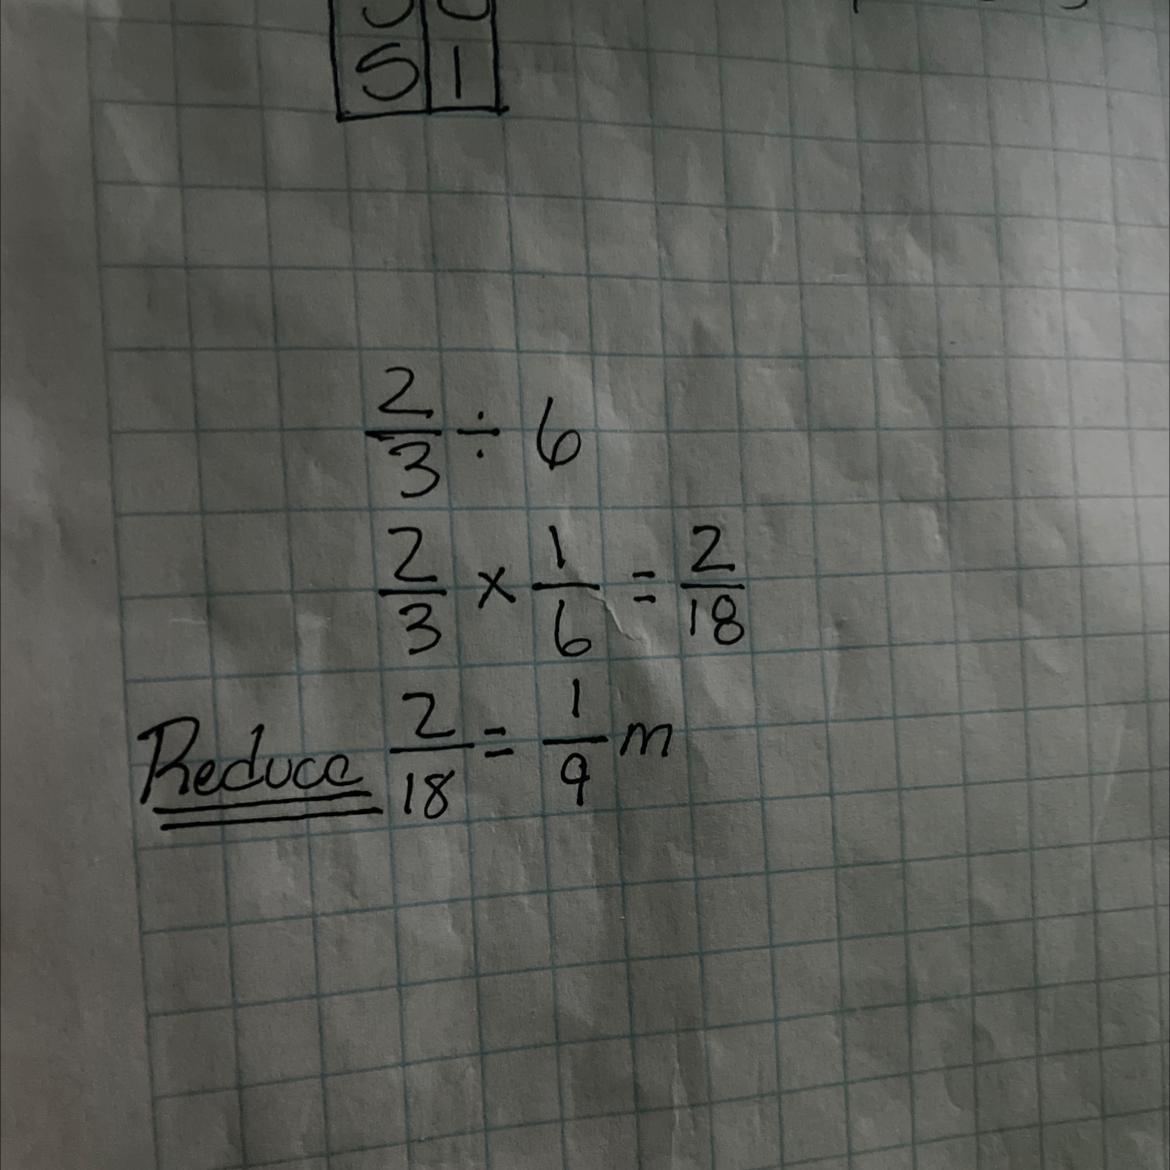 5 1
2/3 ÷ 6
2/3 × 1/6 = 2/18
Reduce 2/18 = 1/9 m